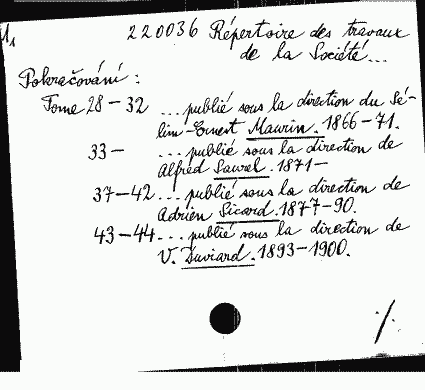 220036 Répertoire des travaux
de la Société...
Pokračování:
Tome 28-32 ... publié sous la direction du Sé-
lim-Ernest Maurin. 1866-71.
33- ... publié sous la direction de
Alfred Saurel. 1871-
37-42 ... publié sous la direction de
Adrien Sicard. 1877-90.
43-44 ... publié sous la direction de
V. Duviard. 1893-1900.
·/.